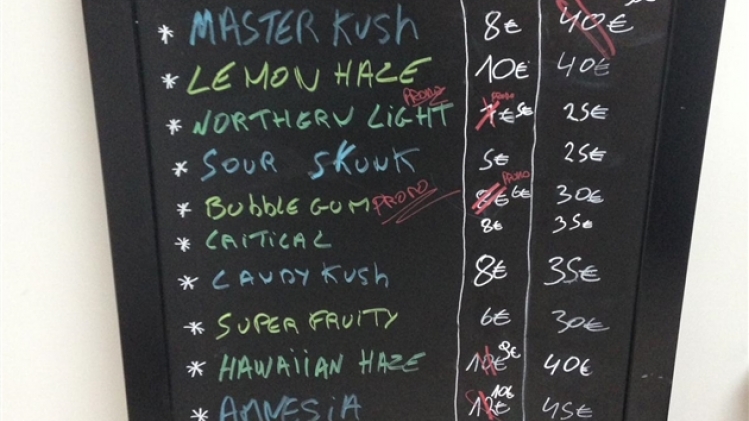 * MASTER KUSH 8€ 40€
* LEMON HAZE 10€ 40€
PROMO PROMO
* NORTHERN LIGHT 7€ 5€ 25€
* SOUR SKUNK 5€ 25€
PROMO
* BUBBLE GUM PROMO 8€ 6€ 30€
* CRITICAL 8€ 35€
* CANDY KUSH 8€ 35€
* SUPER FRUITY 6€ 30€
* HAWAIIAN HAZE 10€ 9€ 40€
* AMNESIA 12€ 10€ 45€